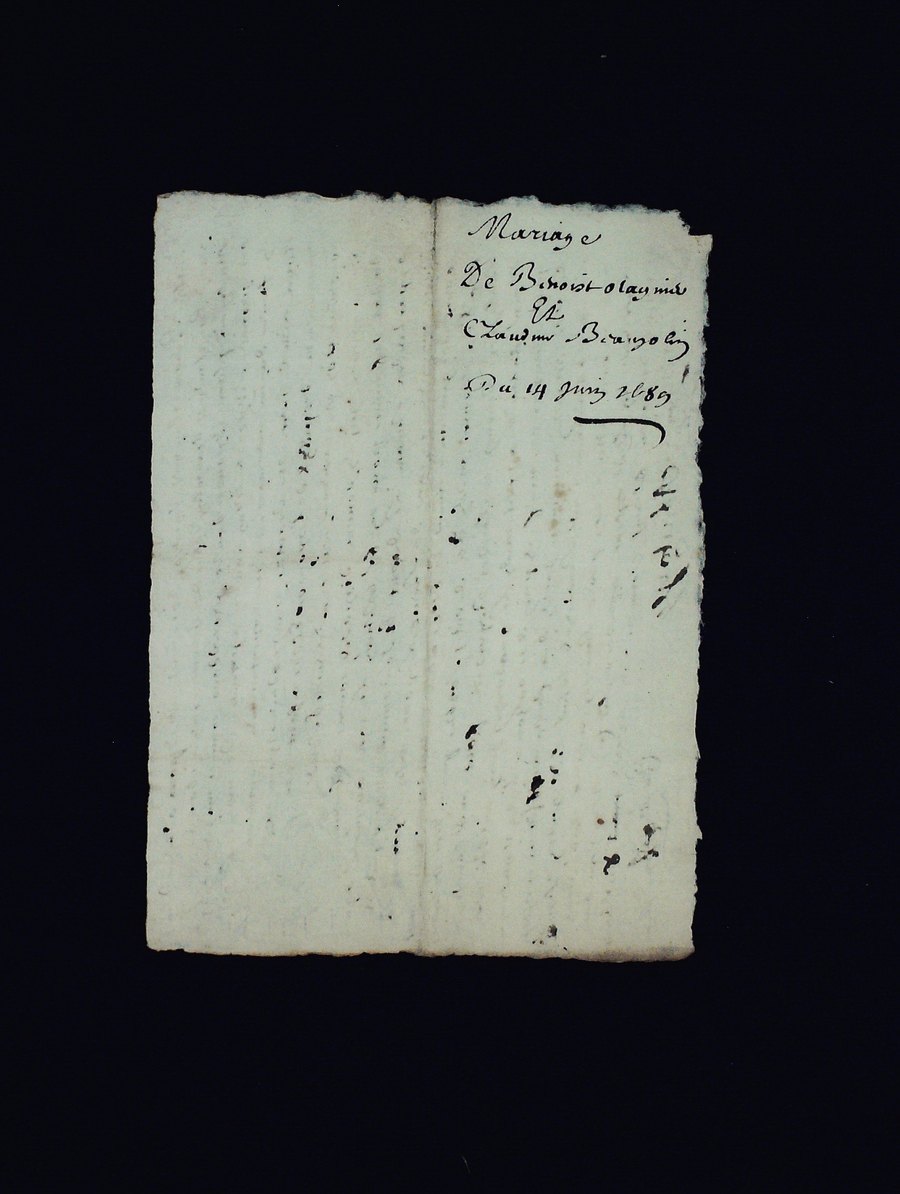 Mariage
De Benoist olagnier
Et
Claudine Beaujolin
Du 14 Juin 1689